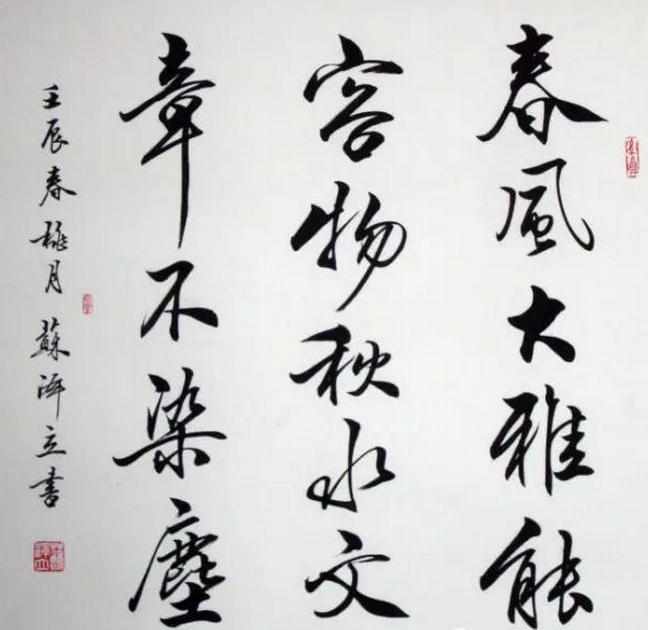 春風大雅能
容物秋水文
章不染塵
壬辰春桃月蘇澤立書